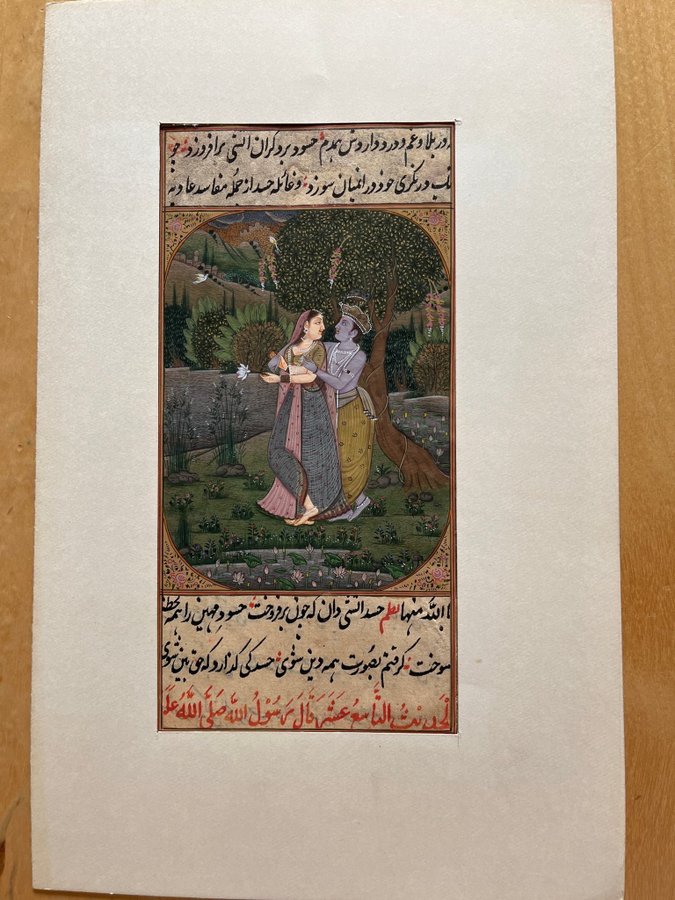 در بلا و غم و درد و داروش همدم حسود بر دکران اتشی برافروزد
در نکری خود در انمیان سوزد و غائله حسد از جمله مفاسد عادیه
الله منها نظم حسد اتشی دان که چون برفروخت حسود مهین را همه
سوخت کرفتم بصورت همه دین شوی حسد کی کذارد که حق بین شوی
الحدیث التاسع عشر قال رسول الله صلی الله علیه